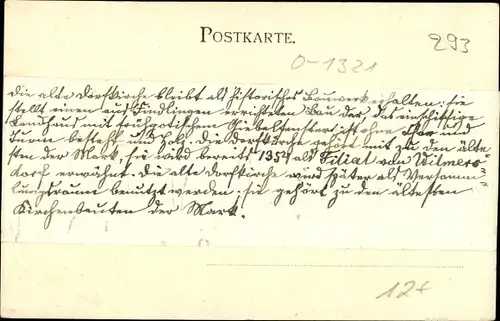 POSTKARTE.
293
O-1321
Die alte Dorfkirche bleibt als historisches Bauwerk erhalten: sie
stellt einen aus Findlingen errichteten Bau dar, das einschiffige
Landhaus mit frühgotischem Giebelfenster ist ohne Chor und
Turm besteht und Holz. Die Dorfkirche gehört mit zu den älte
sten der Mark, sie wird bereits 1352 als Filial von Wilmers-
dorf erwähnt. Die alte Dorfkirche wird später als Versamm-
lungsraum benutzt werden: sie gehört zu den ältesten
Kirchenbauten der Mark.
12+